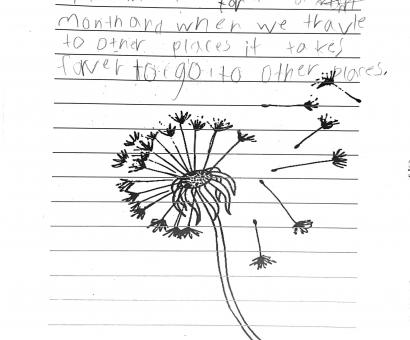 for
month and when we travle
to other places it takes
forver to go to other places.